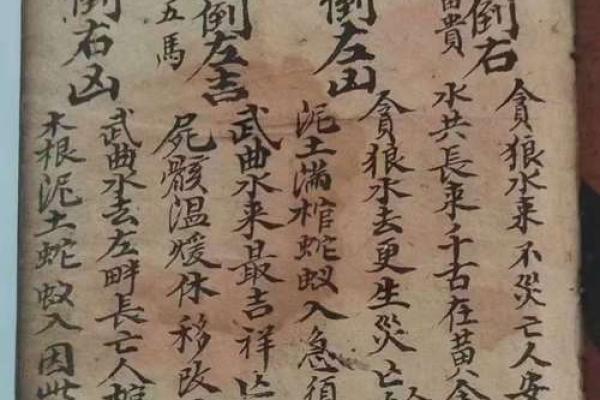 倒右
富貴
貪狼水來不災亡人安
水共長來千古在黄金
倒左凶
貪狼水去更生災亡
泥土滿棺蛇蚁入急須
倒左吉
五馬
武曲水来最吉祥亡
屍骸温煖休移改
倒右凶
武曲水去左畔長亡人棺
木根泥土蛇蚁入因此